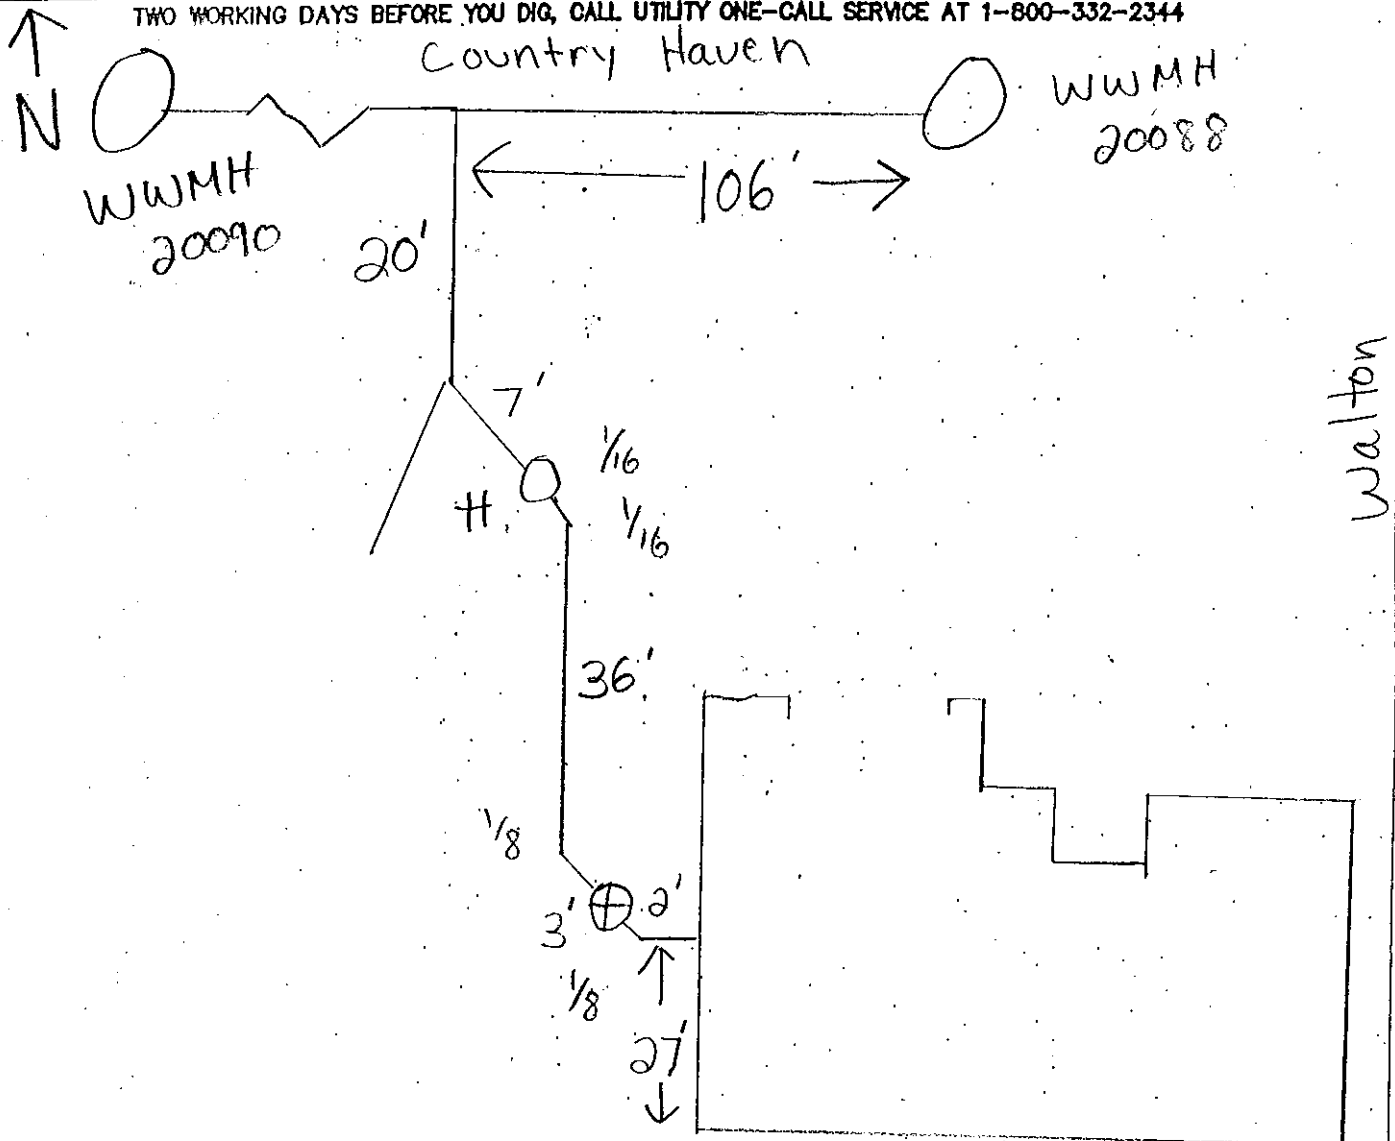 TWO WORKING DAYS BEFORE YOU DIG, CALL UTILITY ONE-CALL SERVICE AT 1-800-332-2344
Country Haven
N
WWMH
20090
WWMH
20088
106'
20'
Walton
7'
1/16
H.
1/16
36'
1/8
3'
2'
1/8
27'